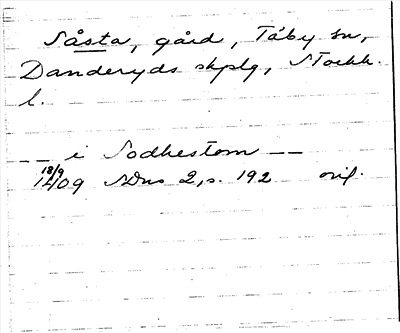 Såsta, gård, Täby sn,
Danderyds skplg, Stockh.
l.
— — i Sodhestom — —
18/9
1409 SDns 2, s. 192 orig.